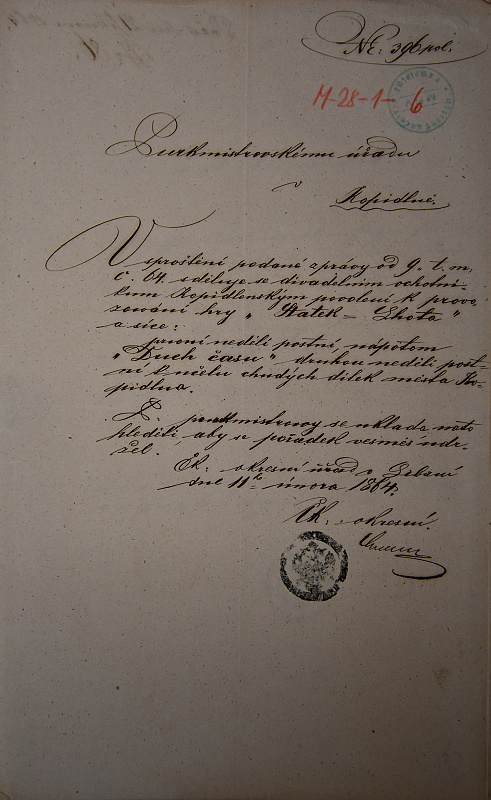 NE: 396 pol.
M-28-1-6
Purkmistrovskému úřadu
v
Kopidlně.
V sproštění podané zprávy od 9. t. m.
č. 64. sděluje se divadelním ochotní-
kům Kopidlenským povolení k provo-
zování hry „Statek = Lhota"
a sice:
první neděli postní, napotom
„Duch času" druhou neděli post-
ní k účelu chudých dítek města Ko-
pidlna.
purkmistrovy se ukládá nato
hleděti, aby se pořádek vesměs udr-
žel.
Ck. okresní úřad v Libáni
dne 11ho února 1864.
Ck. okresní